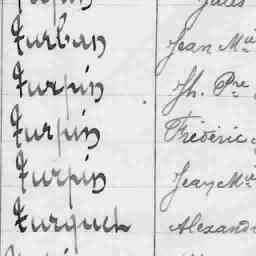 Jules
Turban Jean Mie
Turpin Jh. Pre
Turpin Frédéric
Turpin Jean Mie
Turquet Alexand